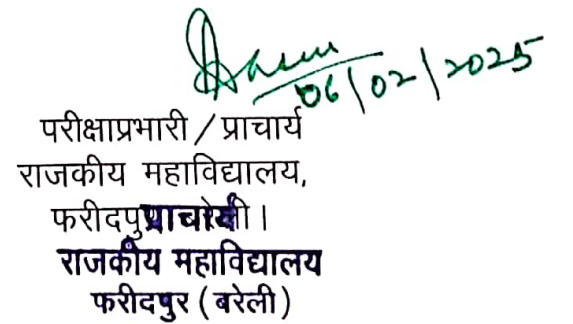 06/02/2025
परीक्षाप्रभारी / प्राचार्य
राजकीय महाविद्यालय,
फरीदपुर बरेली।
प्राचार्य
राजकीय महाविद्यालय
फरीदपुर (बरेली)